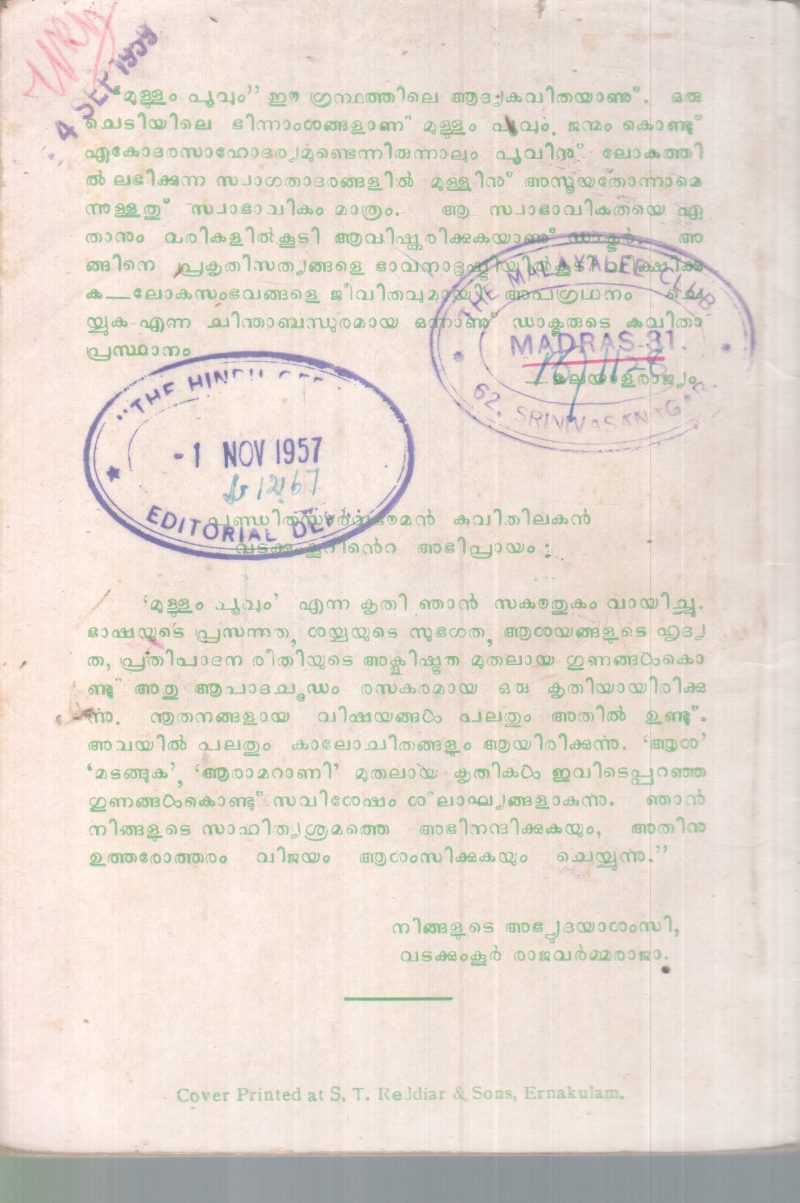 4 SEP 1959
“മുള്ളും പൂവും” ഈ ഗ്രന്ഥത്തിലെ ആദ്യകവിതയാണ്. ഒരു
ചെടിയിലെ ഭിന്നാംശങ്ങളാണ് മുള്ളും പൂവും. ജന്മം കൊണ്ടു്
ഏകോദരസാഹോദര്യമുണ്ടെന്നിരുന്നാലും പൂവിനു് ലോകത്തി
ൽ ലഭിക്കുന്ന സ്വാഗതാദരങ്ങളിൽ മുള്ളിനു് അസൂയതോന്നാമെ
ന്നുള്ളതു് സ്വാഭാവികം മാത്രം. ആ സ്വാഭാവികതയെ ഏ
താനും വരികളിൽകൂടി ആവിഷ്ക്കരിക്കുകയാണു് ഡാക്ടർ. അ
ങ്ങിനെ പ്രകൃതിസത്യങ്ങളെ ഭാവനാദൃഷ്ടിയിൽകൂടി
ക—ലോകസംഭവങ്ങളെ ജീവിതവുമായി അപഗ്രഥനം ചെ
യ്യുക എന്ന ചിന്താബന്ധുരമായ ഒന്നാണു് ഡാക്ടരുടെ കവിതാ
പ്രസ്ഥാനം
—മലയാളരാജ്യം
THE MALAYALEE CLUB,
MADRAS-31.
62, SRINIVASANAGAR.
"THE HINDU
- 1 NOV 1957
EDITORIAL
പണ്ഡിതസാർവ്വഭൗമൻ കവിതിലകൻ
വടക്കുംകൂറിൻെറ അഭിപ്രായം :
‘മുള്ളും പൂവും’ എന്ന കൃതി ഞാൻ സകൗതുകം വായിച്ചു.
ഭാഷയുടെ പ്രസന്നത, ശയ്യയുടെ സുഭഗത, ആശയങ്ങളുടെ ഹൃദ്യ
ത, പ്രതിപാദന രീതിയുടെ അക്ലിഷ്ടത മുതലായ ഗുണങ്ങൾകൊ
ണ്ടു് അതു ആപാദചൂഡം രസകരമായ ഒരു കൃതിയായിരിക്കു
ന്നു. നൂതനങ്ങളായ വിഷയങ്ങൾ പലതും അതിൽ ഉണ്ടു്.
അവയിൽ പലതും കാലോചിതങ്ങളും ആയിരിക്കുന്നു. ‘ആശ’
‘മടങ്ങുക’, ‘ആരാമറാണി’ മുതലായ കൃതികൾ ഇവിടെപ്പറഞ്ഞ
ഗുണങ്ങൾകൊണ്ടു് സവിശേഷം ശ്ലാഘ്യങ്ങളാകുന്നു. ഞാൻ
നിങ്ങളുടെ സാഹിത്യശ്രമത്തെ അഭിനന്ദിക്കുകയും, അതിനു
ഉത്തരോത്തരം വിജയം ആശംസിക്കുകയും ചെയ്യുന്നു.”
നിങ്ങളുടെ അഭ്യുദയാശംസി,
വടക്കുംകൂർ രാജവർമ്മരാജാ.
Cover Printed at S. T. Reddiar & Sons, Ernakulam.